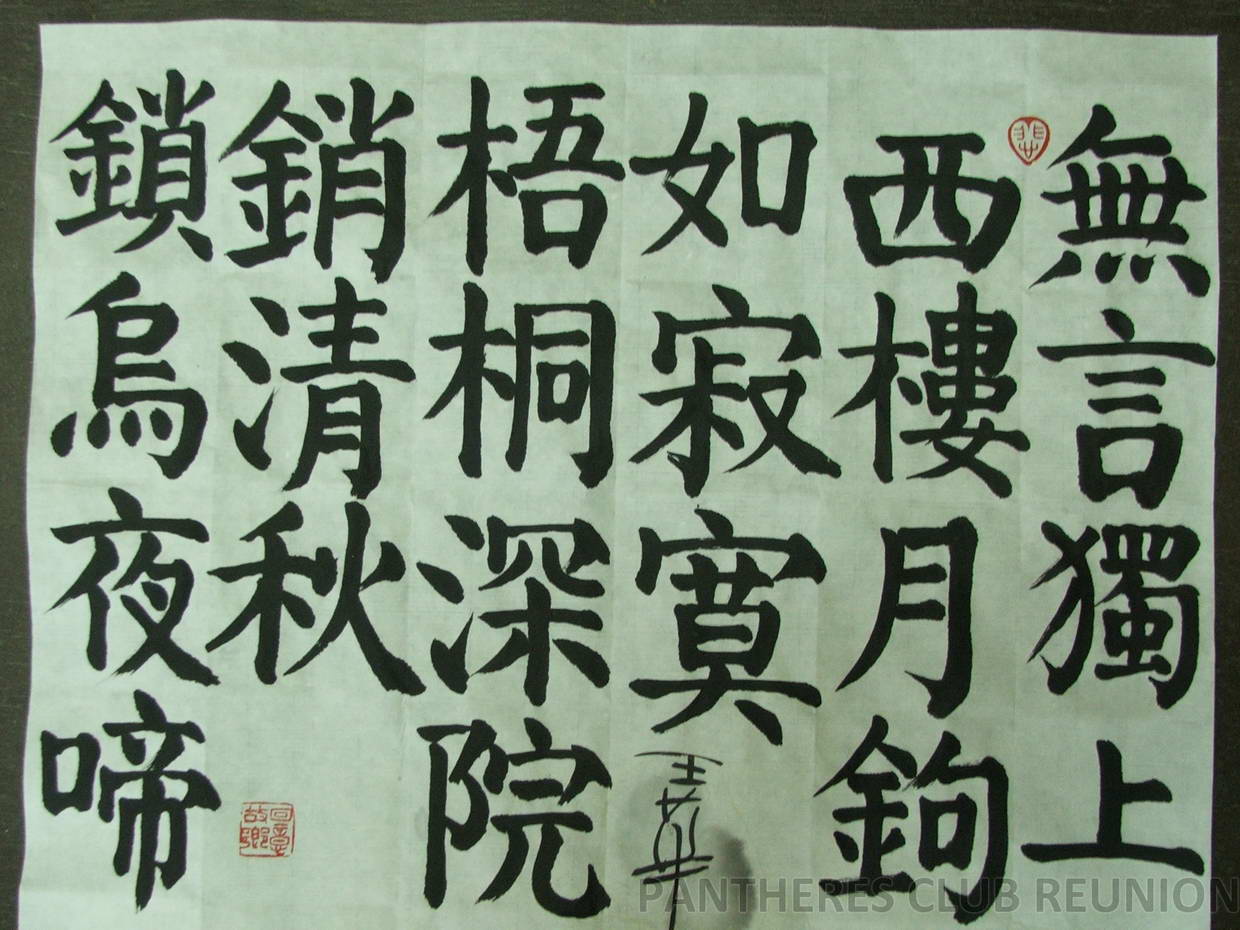 無言獨上
西樓月鉤
如寂寞
王
梧桐深院
銷清秋
故鄉
鎖烏夜啼
PANTHERES CLUB REUNION